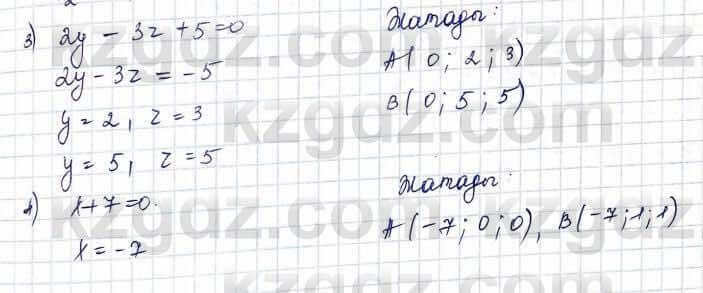 3) 2y - 3z + 5 = 0
2y - 3z = -5
y = 2, z = 3
y = 5, z = 5
Жатады:
A(0; 2; 3)
B(0; 5; 5)
4) x + 7 = 0.
x = -7
Жатады:
A(-7; 0; 0), B(-7; 1; 1)
kzgdz.com